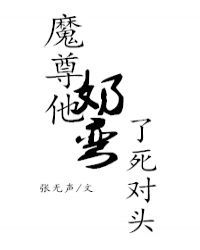 魔尊他
奶弯
了死对头
张无声/文